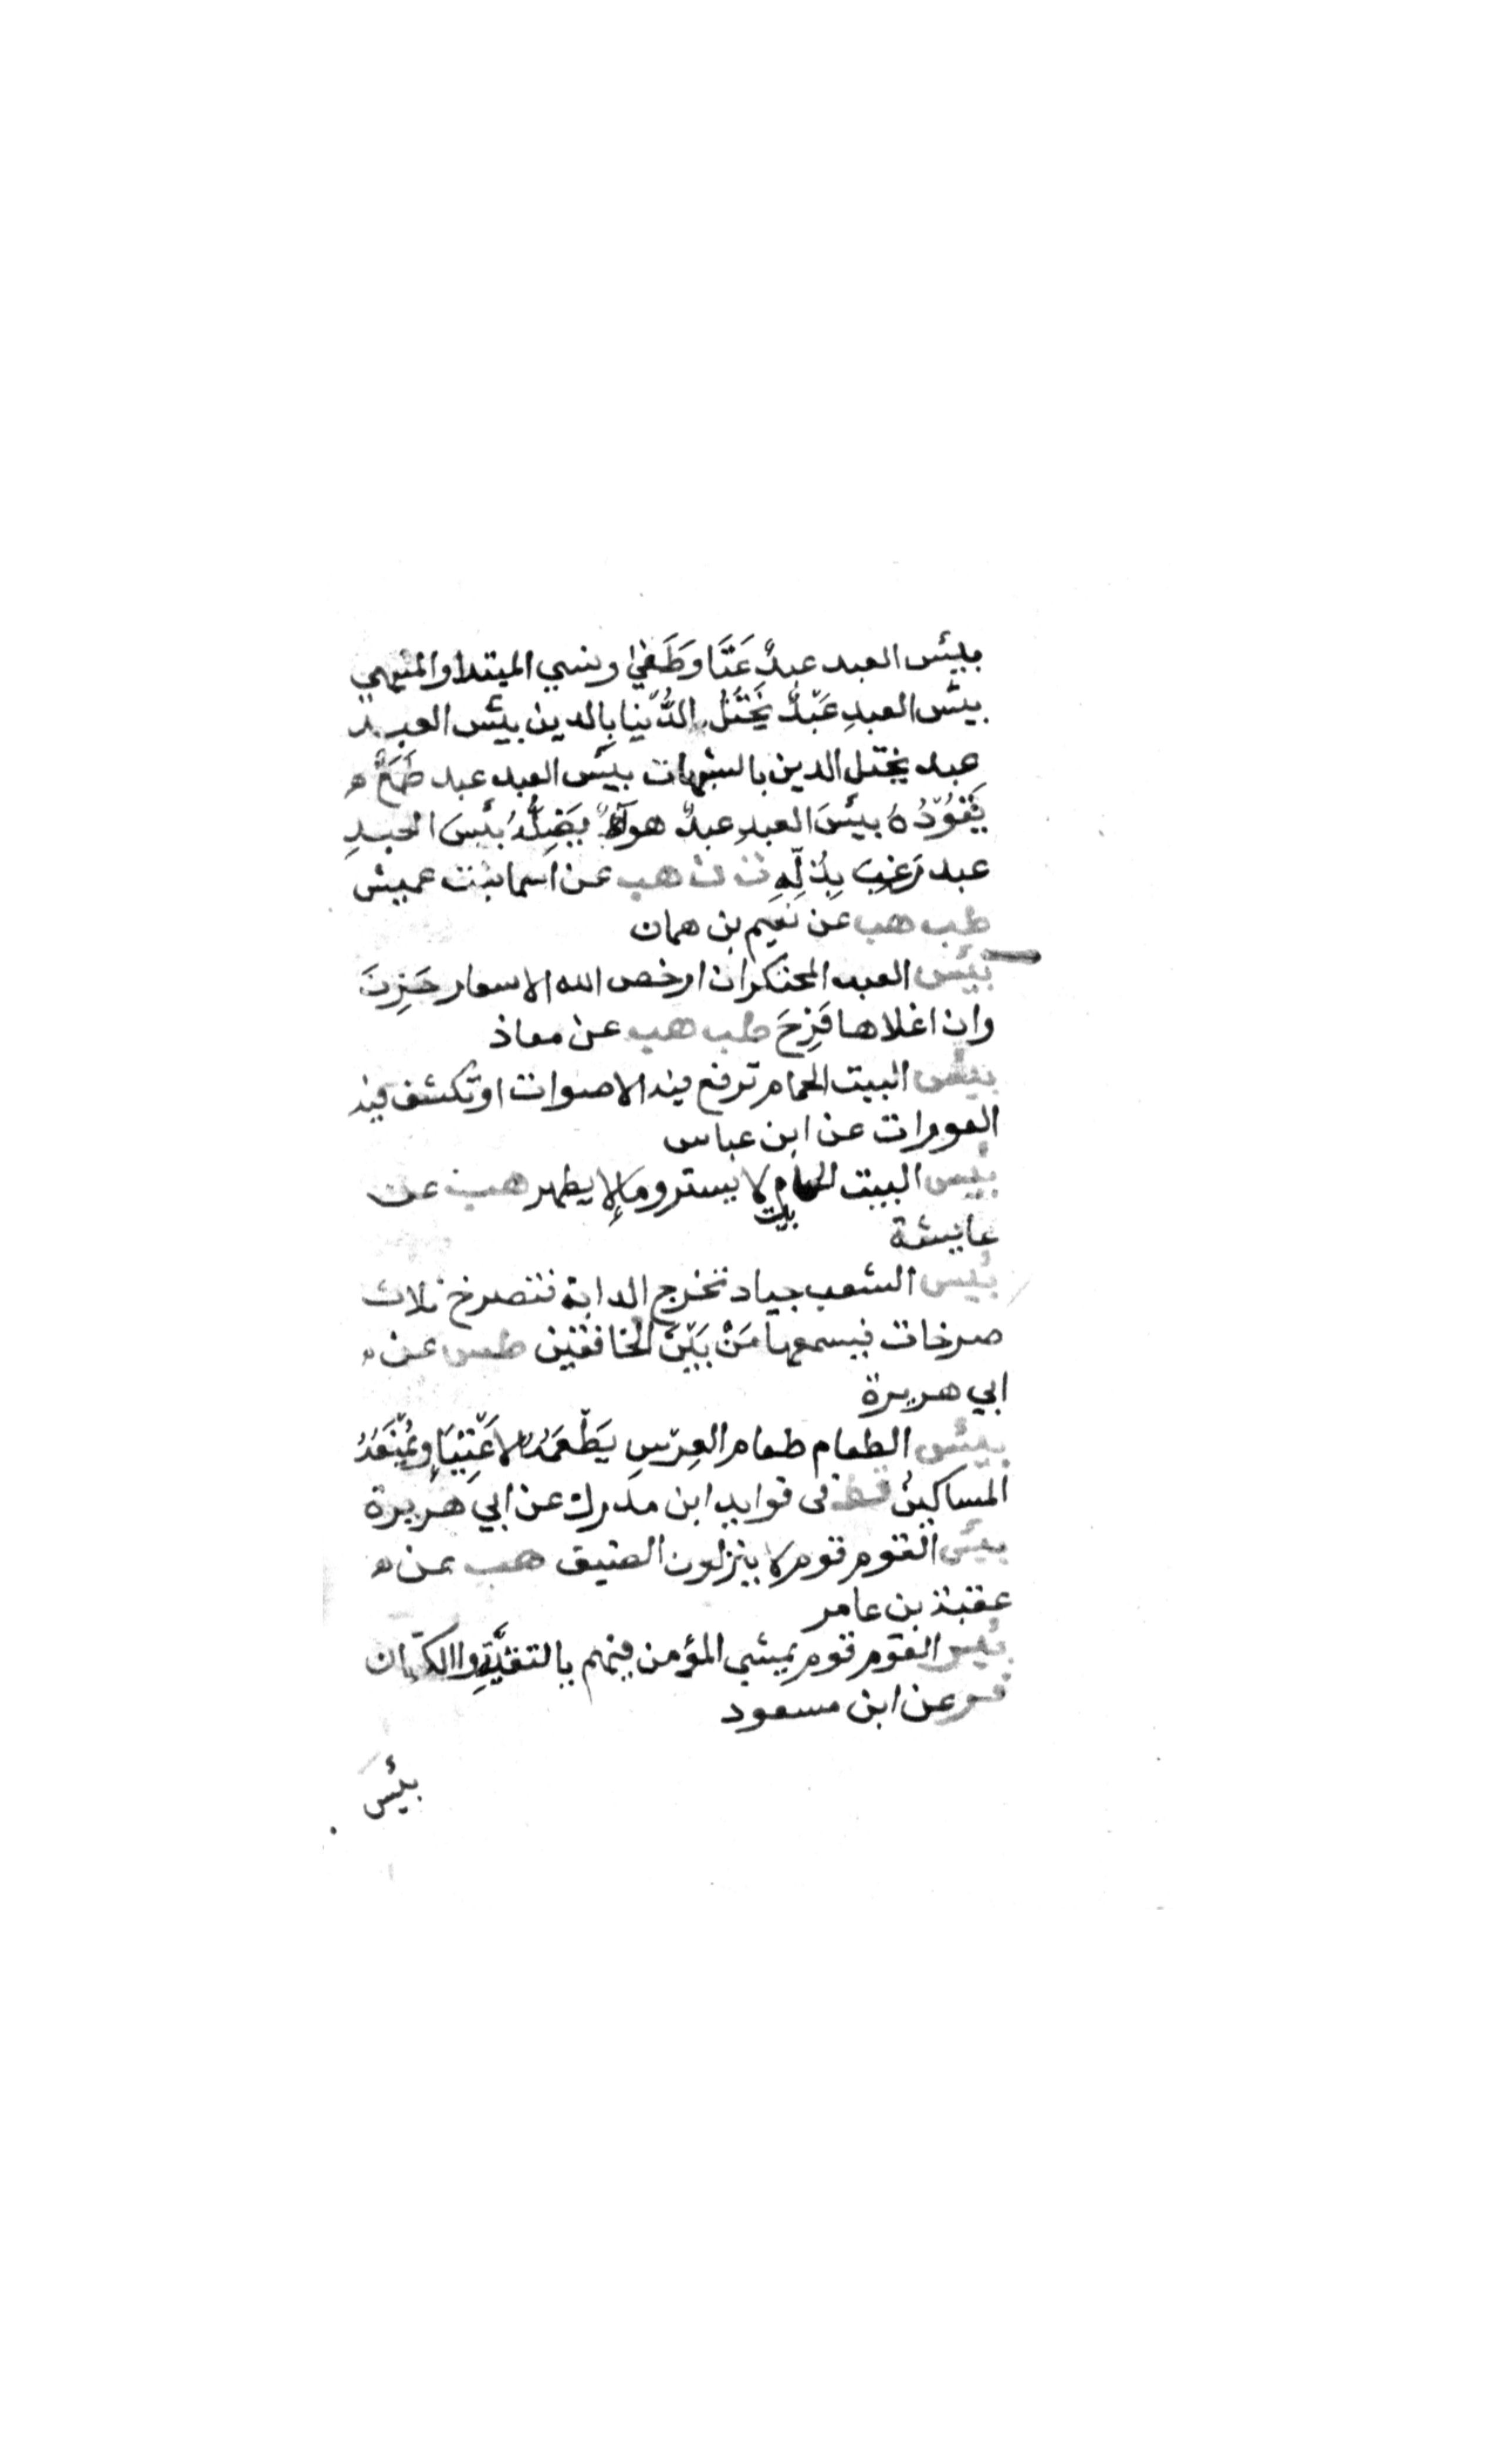 بيئس العبد عبدٌ عَتَا وَطَغَيٰ ونسي المبتدا والمنتهي
بيئس العبدِ عَبْدٌ يَخْتَلُ الدُّنيا بِالدين بيئس العبد
عبد يختل الدين بالشبهات بيئس العبد عبد طَمَعٌ ھ
يَقُوُدُهُ بيئسَ العبدِ عبدٌ هوآهٌ يَضِلُّهُ بئسَ العبدِ
عبد رَغِبَ يِذِلّهِ ت ك هب عن أسما بنت عميش
طب هب عَن نعَيم بن همان
بيئس العبد المحتكر ان ارخص الله الاسعار حَزِنَ
وان اغلاها فَرِحَ طب هب عن معاذ
بيئس البيت الحمام ترفع فيه الاصوات اوتُكشف فيه
العورات عن ابن عباس
بئيس البيت الحمام بيت لا يستر وما لا يطهر هب عن
عايشة
بئيس الشعب جياد تخرج الدابة فتصرخ ثلاث
صرخات فيسمعها مَنْ بَيْنَ الخافقين طس عن ھ
ابي هريرة
بيئس الطعام طعام العِرْسِ يَطْعَمَهُ الاَغْنِيَاءِ وَيُمْنَعَهُ
المساكينُ قط فى فوايد ابن مدرك عن ابي هريرة
بيئس القوم قوم لا ينزلون الضيف هب عن ھ
عقبة بن عامر
بئيس القوم قوم يمشي المؤمن فيهم بالتقيَّةِ واالكتمان
فر عن ابن مسعود
بيئس